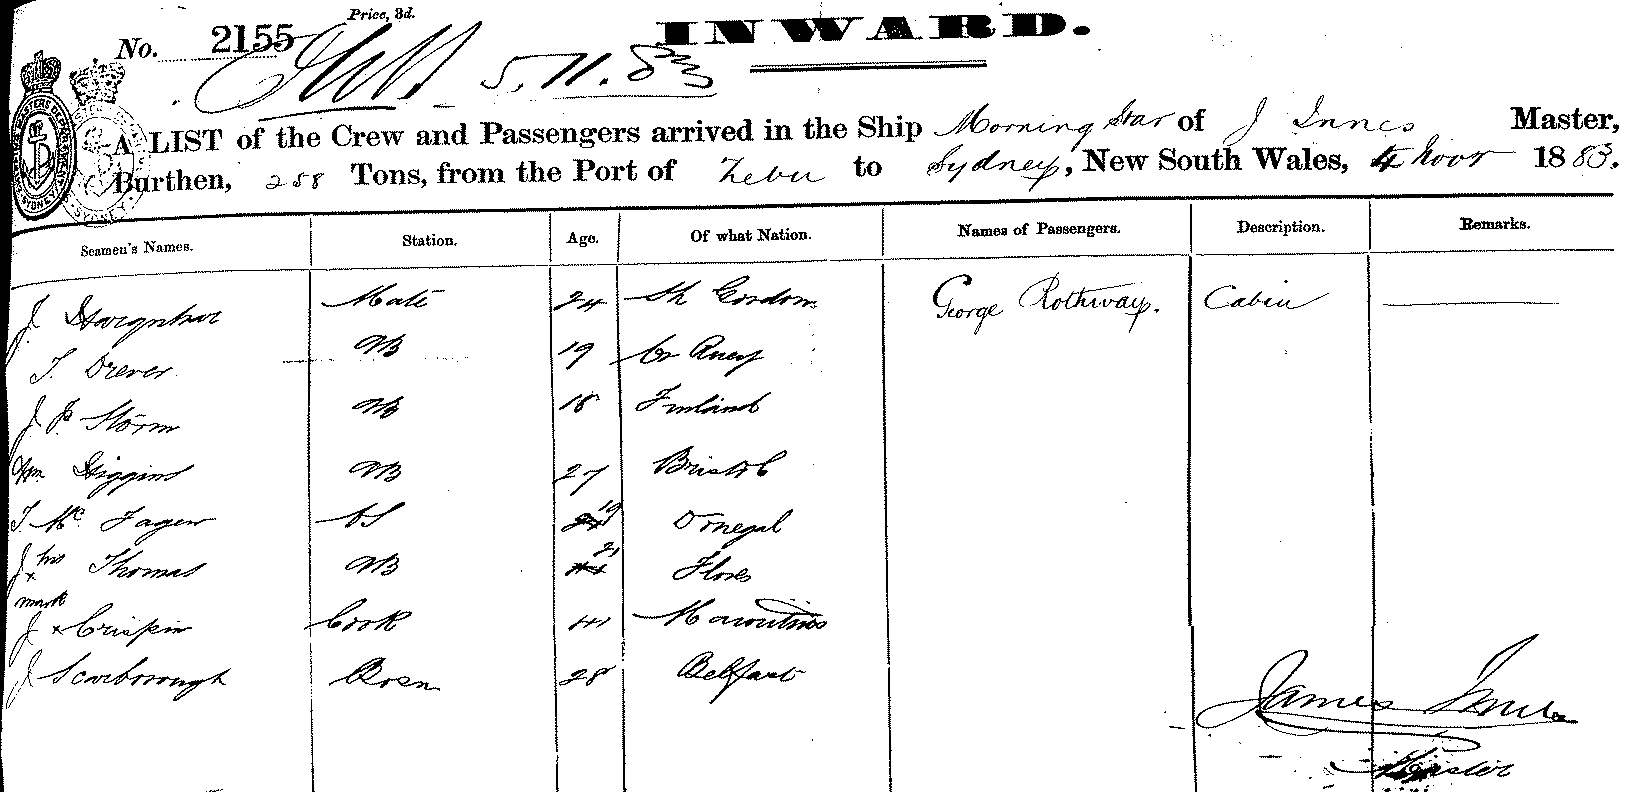 Price, 3d.
INWARD.
No. 2155
5.11.83
A LIST of the Crew and Passengers arrived in the Ship Morning Star of J Innes Master,
Burthen, 258 Tons, from the Port of Zebu to Sydney, New South Wales, 4 Novr 1883.
Seamen's Names. Station. Age. Of what Nation. Names of Passengers. Description. Remarks.
J Mate 24 George Rothway. Cabin
T. Drever AB 19
J P Storm AB 18 Finland
Wm Higgins AB 27 Bristol
T. Mc Fager OS 19 Donegal
J his x Thomas AB 21 Flores
mark
J x Crispin Cook 41 Mauritius
J Scarborough Bosn 28 Belfast
James Innes
Master